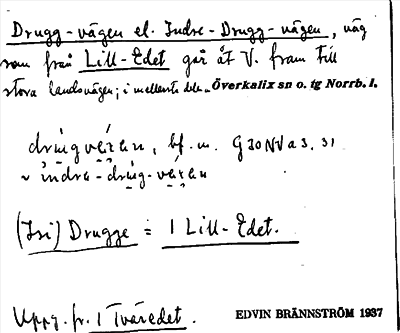 Drugg-vägen el. Indre-Drugg-vägen, väg
som från Lill-Edet går åt V. fram till
stora landsvägen; i mellersta del. Överkalix sn o. tg Norrb. l.
bf. m. G30NVa3.31
~ indra-
(Isi) Drugge = 1 Lill-Edet.
Uppg. fr. 1 Tväredet.
EDVIN BRÄNNSTRÖM 1937